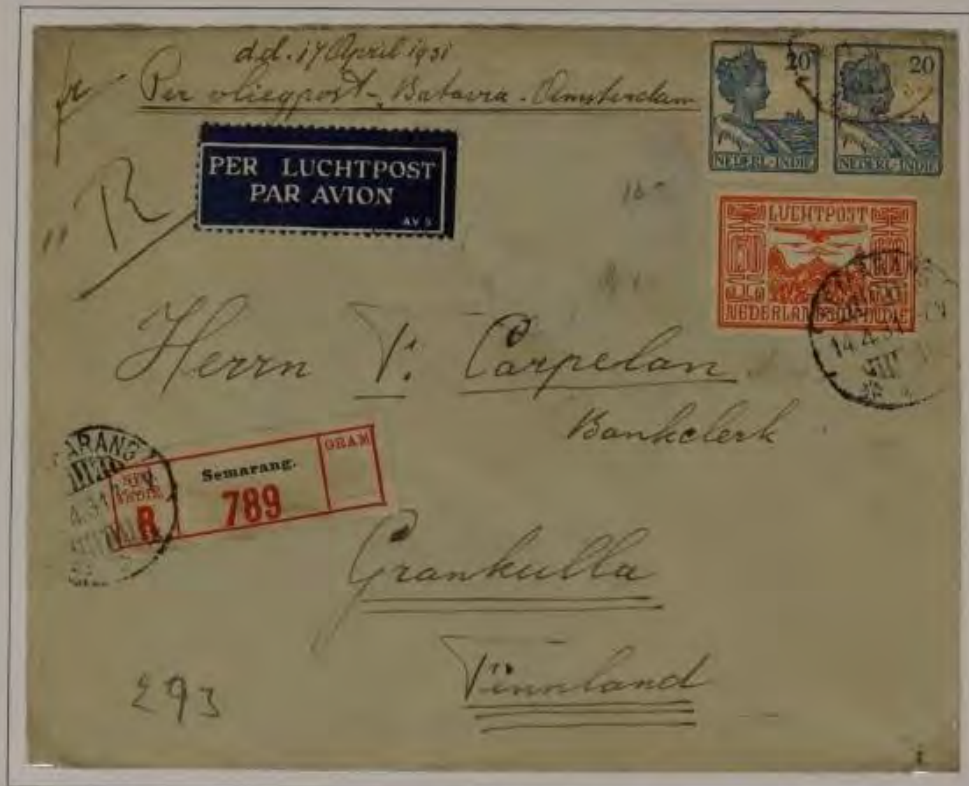 d.d. 17 April 1931
Per vliegpost - Batavia - Amsterdam
20
20
NEDERL-INDIE
NEDERL-INDIE
PER LUCHTPOST
PAR AVION
AV 5
"R
LUCHTPOST
NEDERLANDSCH-INDIE
14.4.31
Herrn V. Carpelan
Bankclerk
ARANG
NED. INDIE
R
Semarang.
789
GRAM
Grankulla
Finnland
293